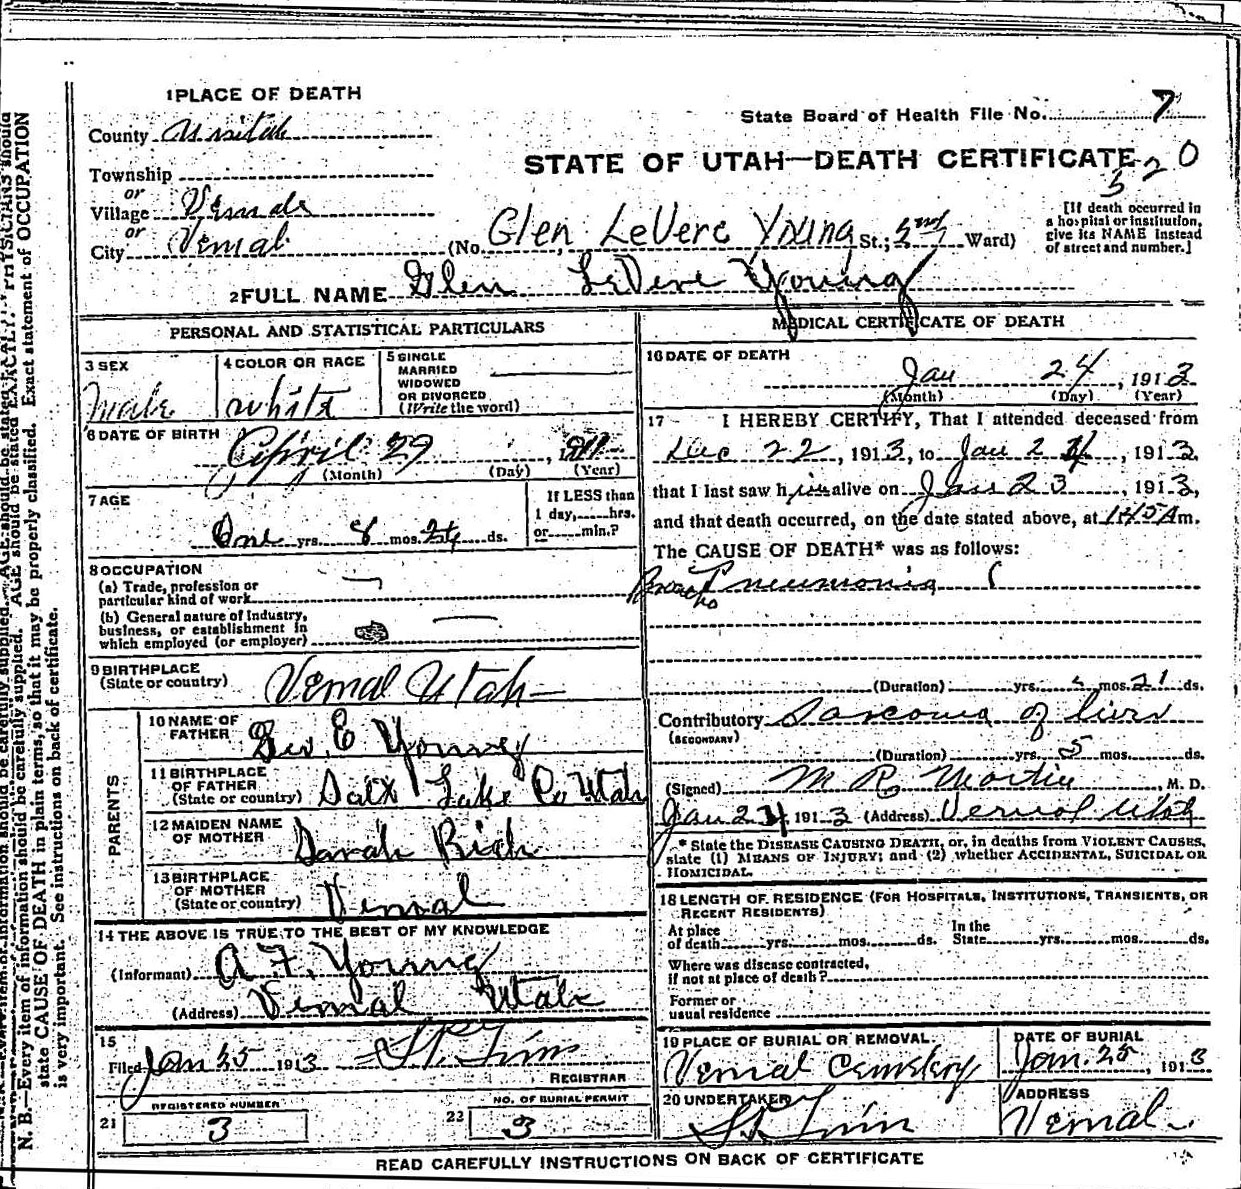 1 PLACE OF DEATH
County Unitah
State Board of Health File No. 7
STATE OF UTAH—DEATH CERTIFICATE 520
Township
or
Village Vernal
or
City Vernal (No. Glen LeVere Young St.; 2nd Ward)
[If death occurred in
a hospital or institution,
give its NAME instead
of street and number.]
2 FULL NAME Glen LeVere Young
PERSONAL AND STATISTICAL PARTICULARS
3 SEX
Male
4 COLOR OR RACE
white
5 SINGLE
MARRIED
WIDOWED
OR DIVORCED
(Write the word)
6 DATE OF BIRTH
April 29
(Month) (Day) (Year)
7 AGE
One yrs. 8 mos. 24 ds.
If LESS than
1 day, hrs.
or min.?
8 OCCUPATION
(a) Trade, profession or
particular kind of work
(b) General nature of Industry,
business, or establishment in
which employed (or employer)
9 BIRTHPLACE
(State or country) Vernal Utah
PARENTS
10 NAME OF
FATHER Geo. E Young
11 BIRTHPLACE
OF FATHER
(State or country) Salt Lake Co Utah
12 MAIDEN NAME
OF MOTHER Sarah Rich
13 BIRTHPLACE
OF MOTHER
(State or country) Vernal
14 THE ABOVE IS TRUE TO THE BEST OF MY KNOWLEDGE
(Informant) A. F. Young
(Address) Vernal Utah
15
Filed Jan 25 1913
REGISTRAR
REGISTERED NUMBER
21 3
NO. OF BURIAL PERMIT
22 3
MEDICAL CERTIFICATE OF DEATH
16 DATE OF DEATH
Jan 24, 1913
(Month) (Day) (Year)
17 I HEREBY CERTIFY, That I attended deceased from
Dec 22, 1913, to Jan 24, 1913,
that I last saw him alive on Jan 23, 1913,
and that death occurred, on the date stated above, at 1:45 A m.
The CAUSE OF DEATH* was as follows:
Broncho Pneumonia
(Duration) yrs. mos. 21 ds.
Contributory Sarcoma of liver
(SECONDARY)
(Duration) yrs. 5 mos. ds.
(Signed) M R Martin, M. D.
Jan 24 1913 (Address) Vernal Utah
* State the DISEASE CAUSING DEATH, or, in deaths from VIOLENT CAUSES,
state (1) MEANS OF INJURY; and (2) whether ACCIDENTAL, SUICIDAL OR
HOMICIDAL.
18 LENGTH OF RESIDENCE (FOR HOSPITALS, INSTITUTIONS, TRANSIENTS, OR
RECENT RESIDENTS)
At place
of death yrs. mos. ds. In the State yrs. mos. ds.
Where was disease contracted,
if not at place of death?
Former or
usual residence
19 PLACE OF BURIAL OR REMOVAL
Vernal Cemetery
DATE OF BURIAL
Jan. 25, 1913
20 UNDERTAKER
ADDRESS
Vernal
READ CAREFULLY INSTRUCTIONS ON BACK OF CERTIFICATE
N. B.—Every item of information should be carefully supplied. AGE should be stated EXACTLY. PHYSICIANS should
state CAUSE OF DEATH in plain terms, so that it may be properly classified. Exact statement of OCCUPATION
is very important. See instructions on back of certificate.